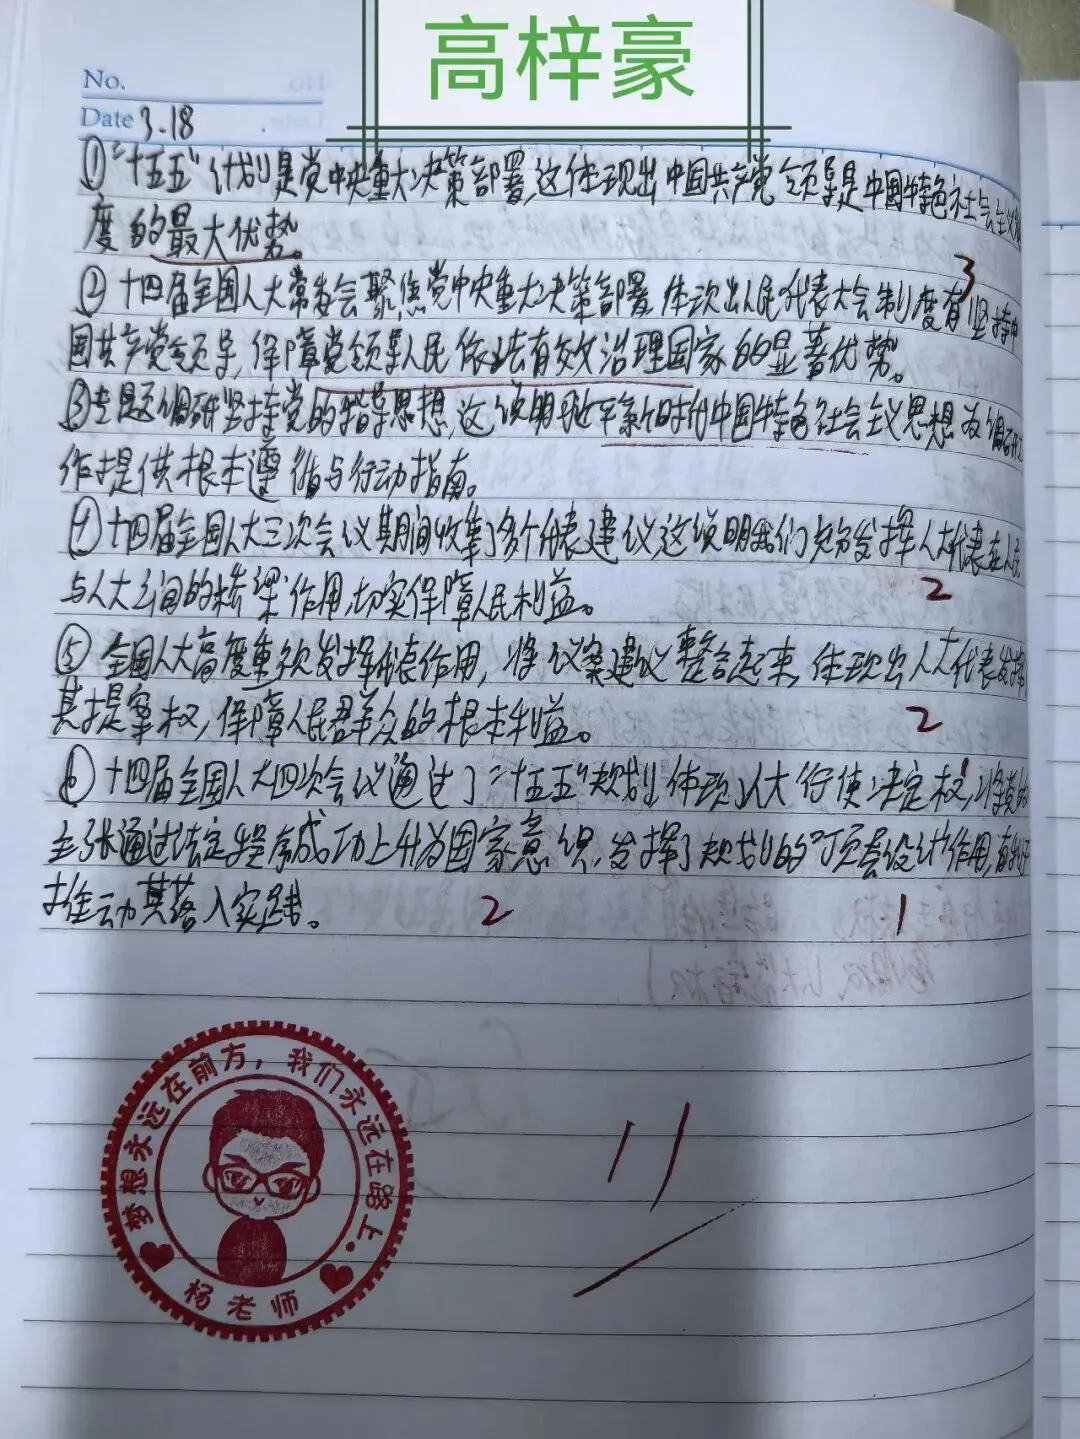 高梓豪
No.
Date 3.18
①“十五五”计划是党中央重大决策部署,这体现出中国共产党领导是中国特色社会主义制
度的最大优势。
3
②十四届全国人大常委会聚焦党中央重大决策部署,体现出人民代表大会制度有坚持中
国共产党领导,保障党领导人民依法有效治理国家的显著优势。
③专题调研坚持党的指导思想,这说明习近平新时代中国特色社会主义思想为调研工
作提供根本遵循与行动指南。
④十四届全国人大三次会议期间收集了多个代表建议,这说明我们充分发挥人大代表在人民
与人大之间的桥梁作用,切实保障人民利益。
2
⑤全国人大高度重视发挥代表作用,将议案建议整合起来,体现出人大代表发挥
其提案权,保障人民群众的根本利益。
2
⑥十四届全国人大四次会议通过了“十五五”规划,体现人大行使决定权,将党的
主张通过法定程序成功上升为国家意识,发挥了规划的“顶层设计”作用,有利于
推动其落入实践。
2
1
梦想永远在前方,我们永远在路上.
杨老师
11